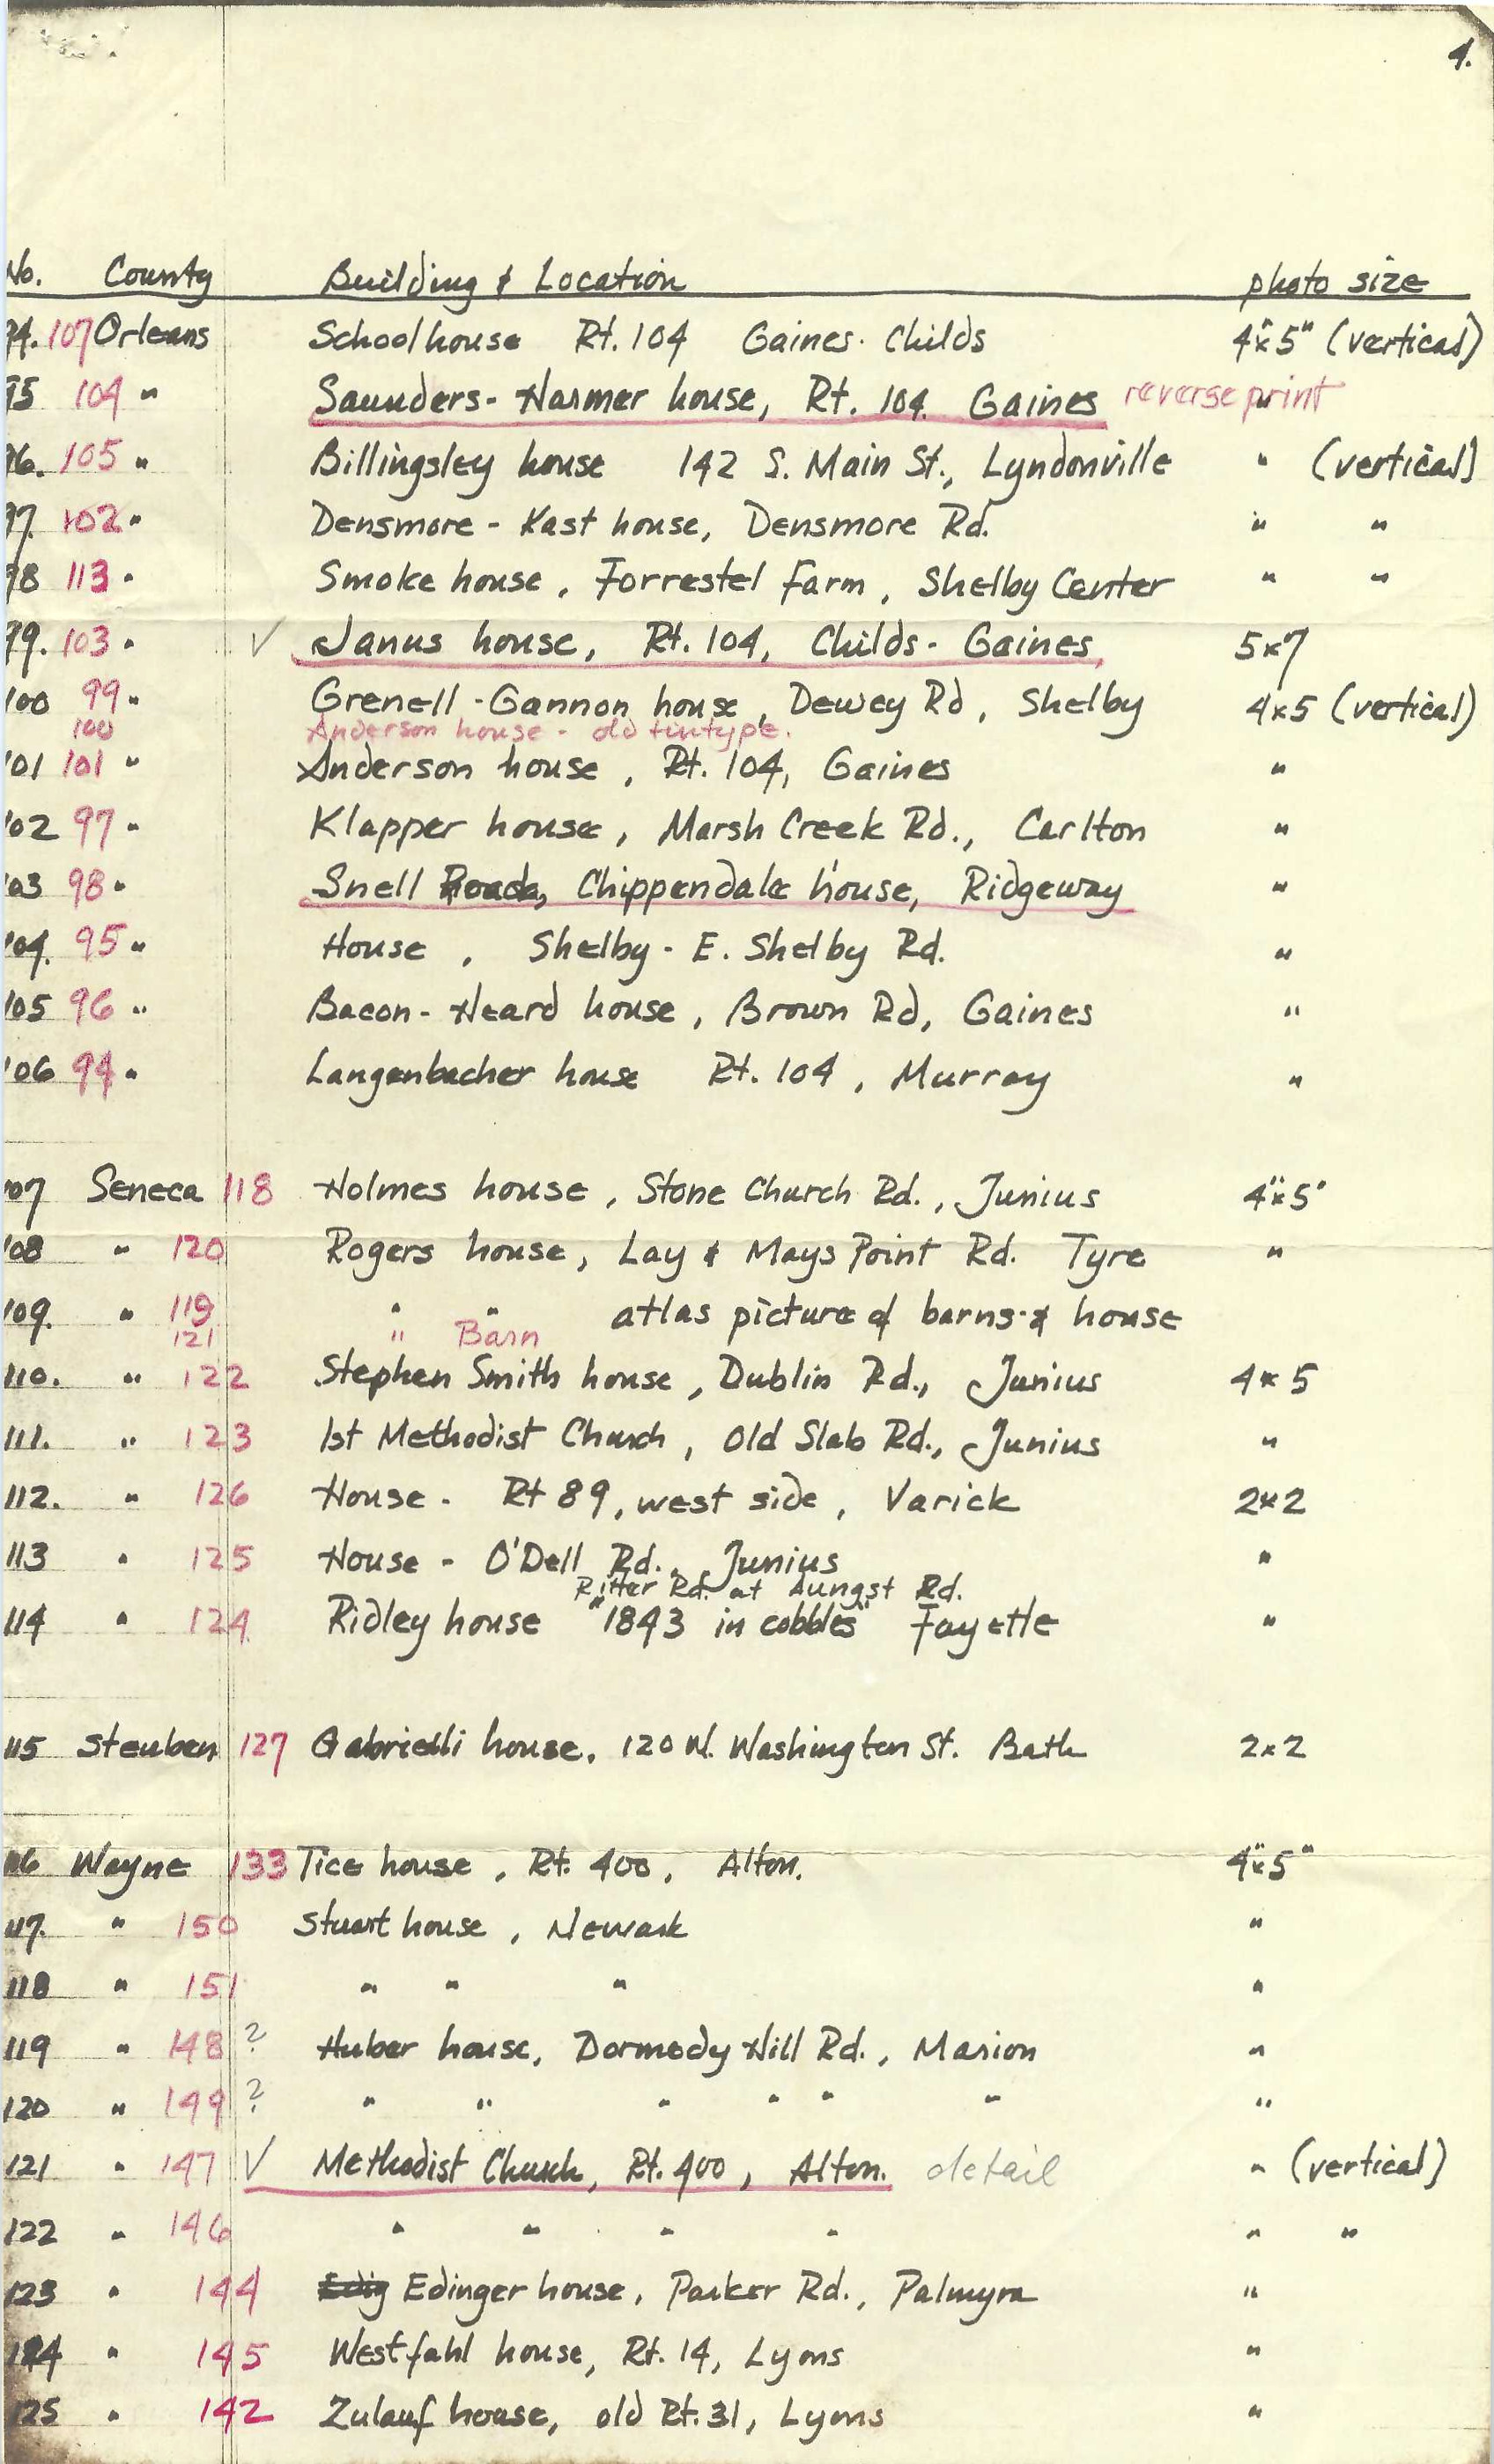 4.
No. County Building & Location photo size
94. 107 Orleans Schoolhouse Rt. 104 Gaines. Childs 4"x5" (vertical)
95 104 " Saunders-Harmer house, Rt. 104 Gaines reverse print
96. 105 " Billingsley house 142 S. Main St., Lyndonville " (vertical)
97. 102 " Densmore - Kast house, Densmore Rd. " "
98 113 " Smoke house, Forrestel farm, Shelby Center " "
99. 103 " ✓ Janus house, Rt. 104, Childs - Gaines, 5x7
100 99 " Grenell - Gannon house, Dewey Rd, Shelby 4x5 (vertical)
100 Anderson house - old tintype.
101 101 " Anderson house, Rt. 104, Gaines "
102 97 " Klapper house, Marsh Creek Rd., Carlton "
103 98 " Snell Chippendale house, Ridgeway "
104. 95 " House, Shelby - E. Shelby Rd. "
105 96 " Bacon - Heard house, Brown Rd, Gaines "
106 94 " Langenbacher house Rt. 104, Murray "
107 Seneca 118 Holmes house, Stone Church Rd., Junius 4"x5"
108 " 120 Rogers house, Lay & Mays Point Rd. Tyre "
109. " 119 " " atlas picture of barns & house
121 " Barn
110. " 122 Stephen Smith house, Dublin Rd., Junius 4x5
111. " 123 1st Methodist Church, Old Slab Rd., Junius "
112. " 126 House - Rt 89, west side, Varick 2x2
113 " 125 House - O'Dell Rd., Junius "
Ritter Rd. at Aungst Rd.
114 " 124 Ridley house "1843 in cobbles" Fayette "
115 Steuben 127 Gabrielli house, 120 W. Washington St. Bath 2x2
116 Wayne 133 Tice house, Rt. 400, Alton. 4"x5"
117. " 150 Stuart house, Newark "
118 " 151 " " " "
119 " 148 ? Huber house, Dormedy Hill Rd., Marion "
120 " 149 ? " " " " " " "
121 " 147 ✓ Methodist Church, Rt. 400, Alton. detail " (vertical)
122 " 146 " " " " " "
123 " 144 Edig Edinger house, Parker Rd., Palmyra "
124 " 145 Westfahl house, Rt. 14, Lyons "
125 " 142 Zulauf house, old Rt. 31, Lyons "